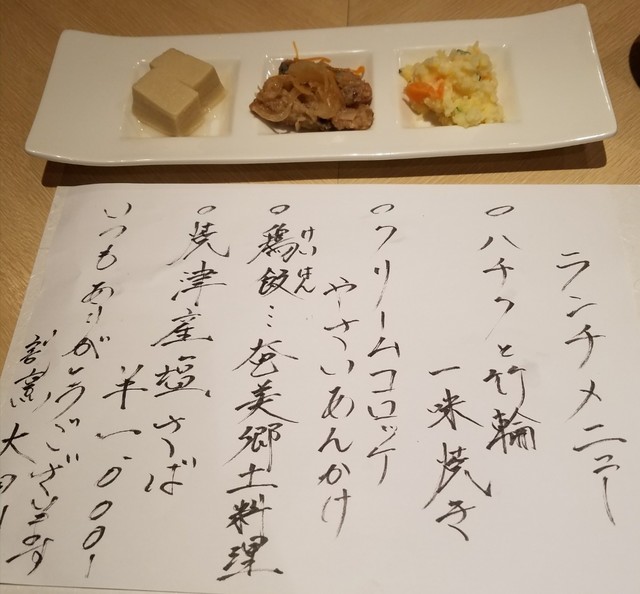 ランチメニュー
○ハチクと竹輪
一味焼き
○クリームコロッケ
やさいあんかけ
けいはん
○鶏飯…奄美郷土料理
○焼津産塩さば
半一.000!
いつもありがとうございます
割烹 大